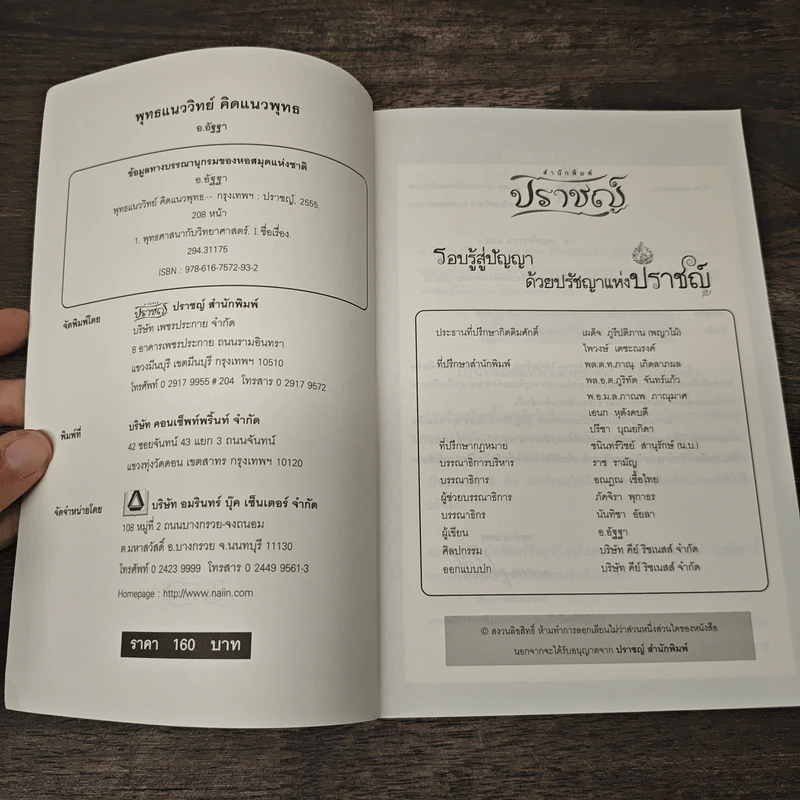 พุทธแนววิทย์ คิดแนวพุทธ
อ.อัฐฐา
ข้อมูลทางบรรณานุกรมของหอสมุดแห่งชาติ
อ.อัฐฐา
พุทธแนววิทย์ คิดแนวพุทธ.-- กรุงเทพฯ : ปราชญ์, 2555.
208 หน้า
1. พุทธศาสนากับวิทยาศาสตร์. I. ชื่อเรื่อง.
294.31175
ISBN : 978-616-7572-93-2
จัดพิมพ์โดย ปราชญ์ ปราชญ์ สำนักพิมพ์
บริษัท เพชรประกาย จำกัด
8 อาคารเพชรประกาย ถนนรามอินทรา
แขวงมีนบุรี เขตมีนบุรี กรุงเทพฯ 10510
โทรศัพท์ 0 2917 9955 # 204 โทรสาร 0 2917 9572
พิมพ์ที่ บริษัท คอนเซ็พท์พริ้นท์ จำกัด
42 ซอยจันทน์ 43 แยก 3 ถนนจันทน์
แขวงทุ่งวัดดอน เขตสาทร กรุงเทพฯ 10120
จัดจำหน่ายโดย บริษัท อมรินทร์ บุ๊ค เซ็นเตอร์ จำกัด
108 หมู่ที่ 2 ถนนบางกรวย-จงถนอม
ต.มหาสวัสดิ์ อ.บางกรวย จ.นนทบุรี 11130
โทรศัพท์ 0 2423 9999 โทรสาร 0 2449 9561-3
Homepage : http://www.naiin.com
ราคา 160 บาท
สำนักพิมพ์
ปราชญ์
รอบรู้สู่ปัญญา
ด้วยปรัชญาแห่งปราชญ์
ประธานที่ปรึกษากิตติมศักดิ์ เผด็จ ภูรีปติภาน (พญาไม้)
ไพวงษ์ เตชะณรงค์
ที่ปรึกษาสำนักพิมพ์ พล.ต.ท.ภาณุ เกิดลาภผล
พล.อ.ต.ภูริทัต จันทร์แก้ว
พ.อ.ม.ล.ภาณพ ภาณุมาศ
เอนก หุตังคบดี
ปรีชา บุณยกิดา
ที่ปรึกษากฎหมาย ชนินทร์วิชย์ สานุรักษ์ (น.บ.)
บรรณาธิการบริหาร ราช รามัญ
บรรณาธิการ อณฎณ เชื้อไทย
ผู้ช่วยบรรณาธิการ ภัคจิรา พุกาธร
บรรณาธิกร นันทิชา อัยลา
ผู้เขียน อ.อัฐฐา
ศิลปกรรม บริษัท คีย์ ริชเนสส์ จำกัด
ออกแบบปก บริษัท คีย์ ริชเนสส์ จำกัด
© สงวนลิขสิทธิ์ ห้ามทำการลอกเลียนไม่ว่าส่วนหนึ่งส่วนใดของหนังสือ
นอกจากจะได้รับอนุญาตจาก ปราชญ์ สำนักพิมพ์